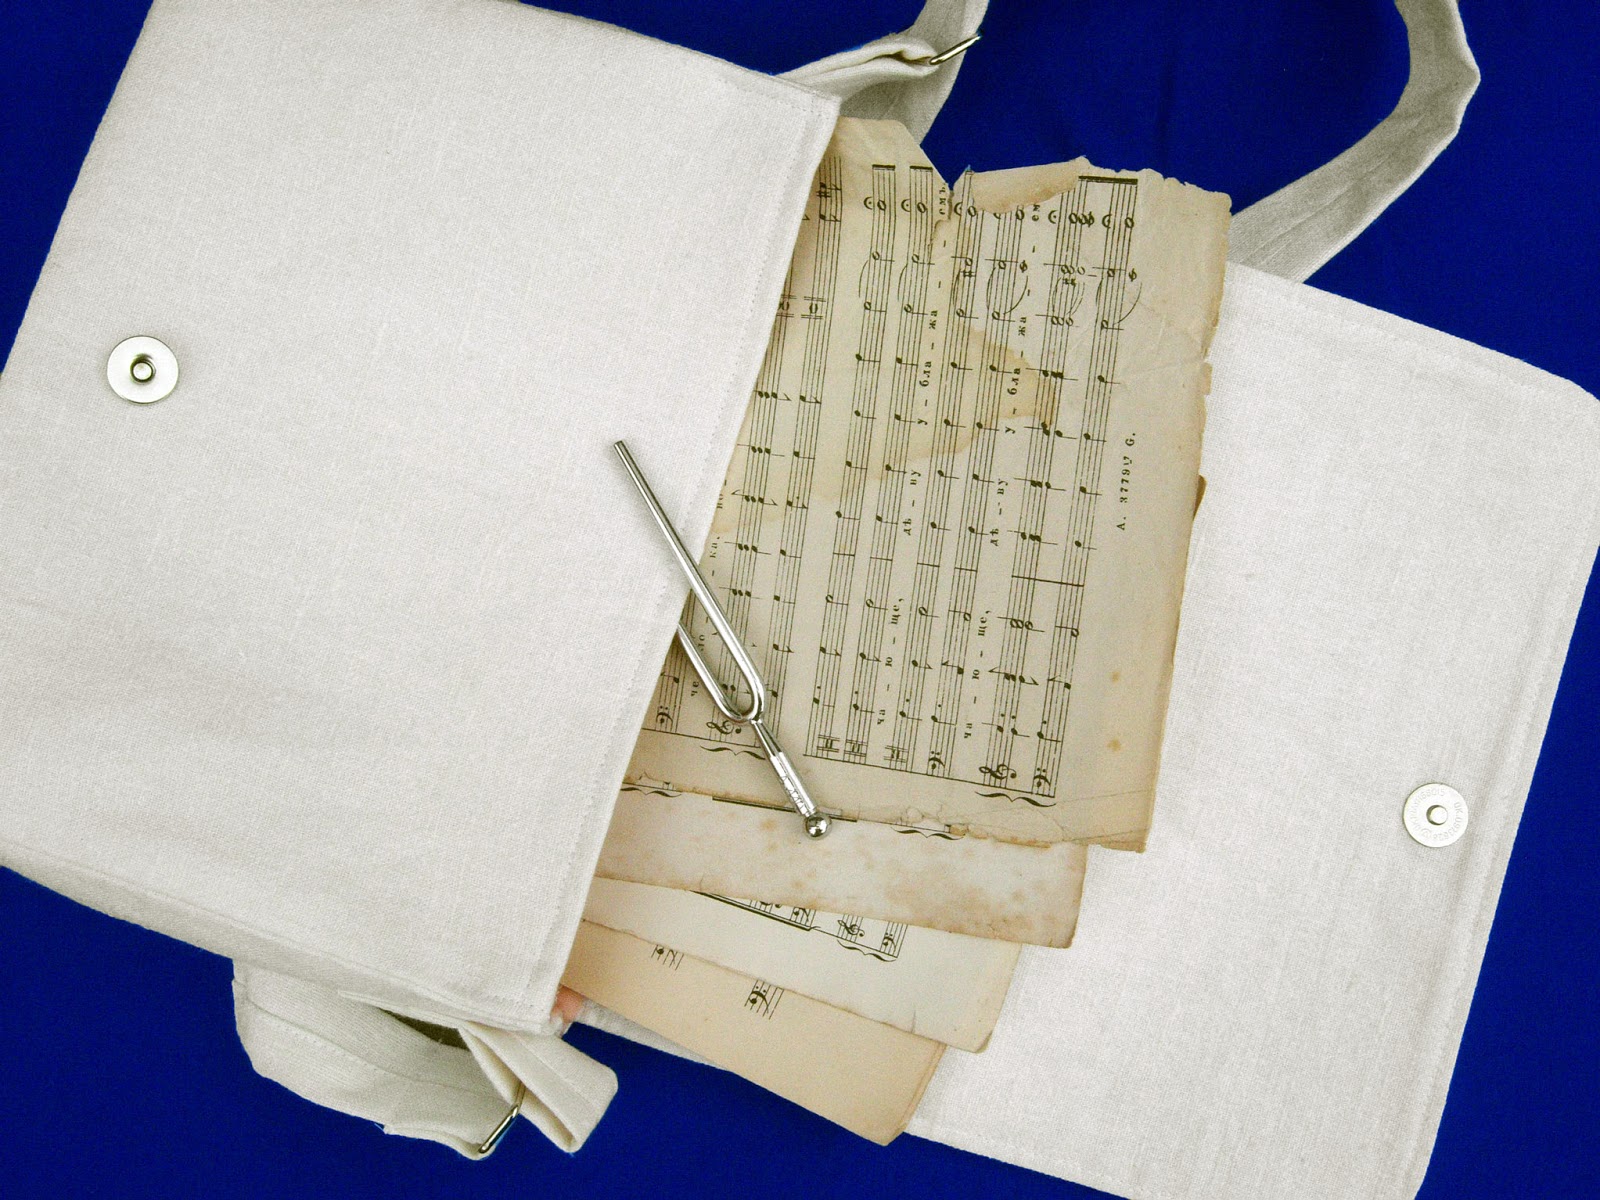 че - ло - - ка,
ча - ю - ще, дѣ - ву у - бла - жа - емъ.
ча - ю - ще, дѣ - ву у - бла - жа - ем
А. G.